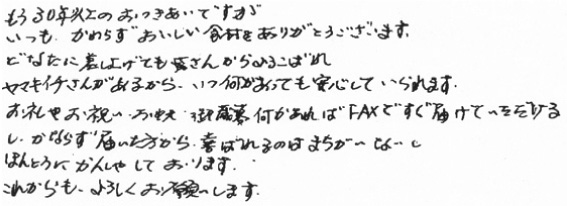 もう30年以上のおつきあいですが
いつも、かわらずおいしい食材をありがとうございます。
どなたに差上げても皆さんからよろこばれ
ヤマキイチさんがあるから、いつ何があっても安心していられます。
お礼やお祝い、お 何かあればFAXですぐ届けていただける
し、かならず届いた方から、喜ばれるのはまちがいないし
ほんとうにかんしゃしております。
これからも、よろしくお願いします。